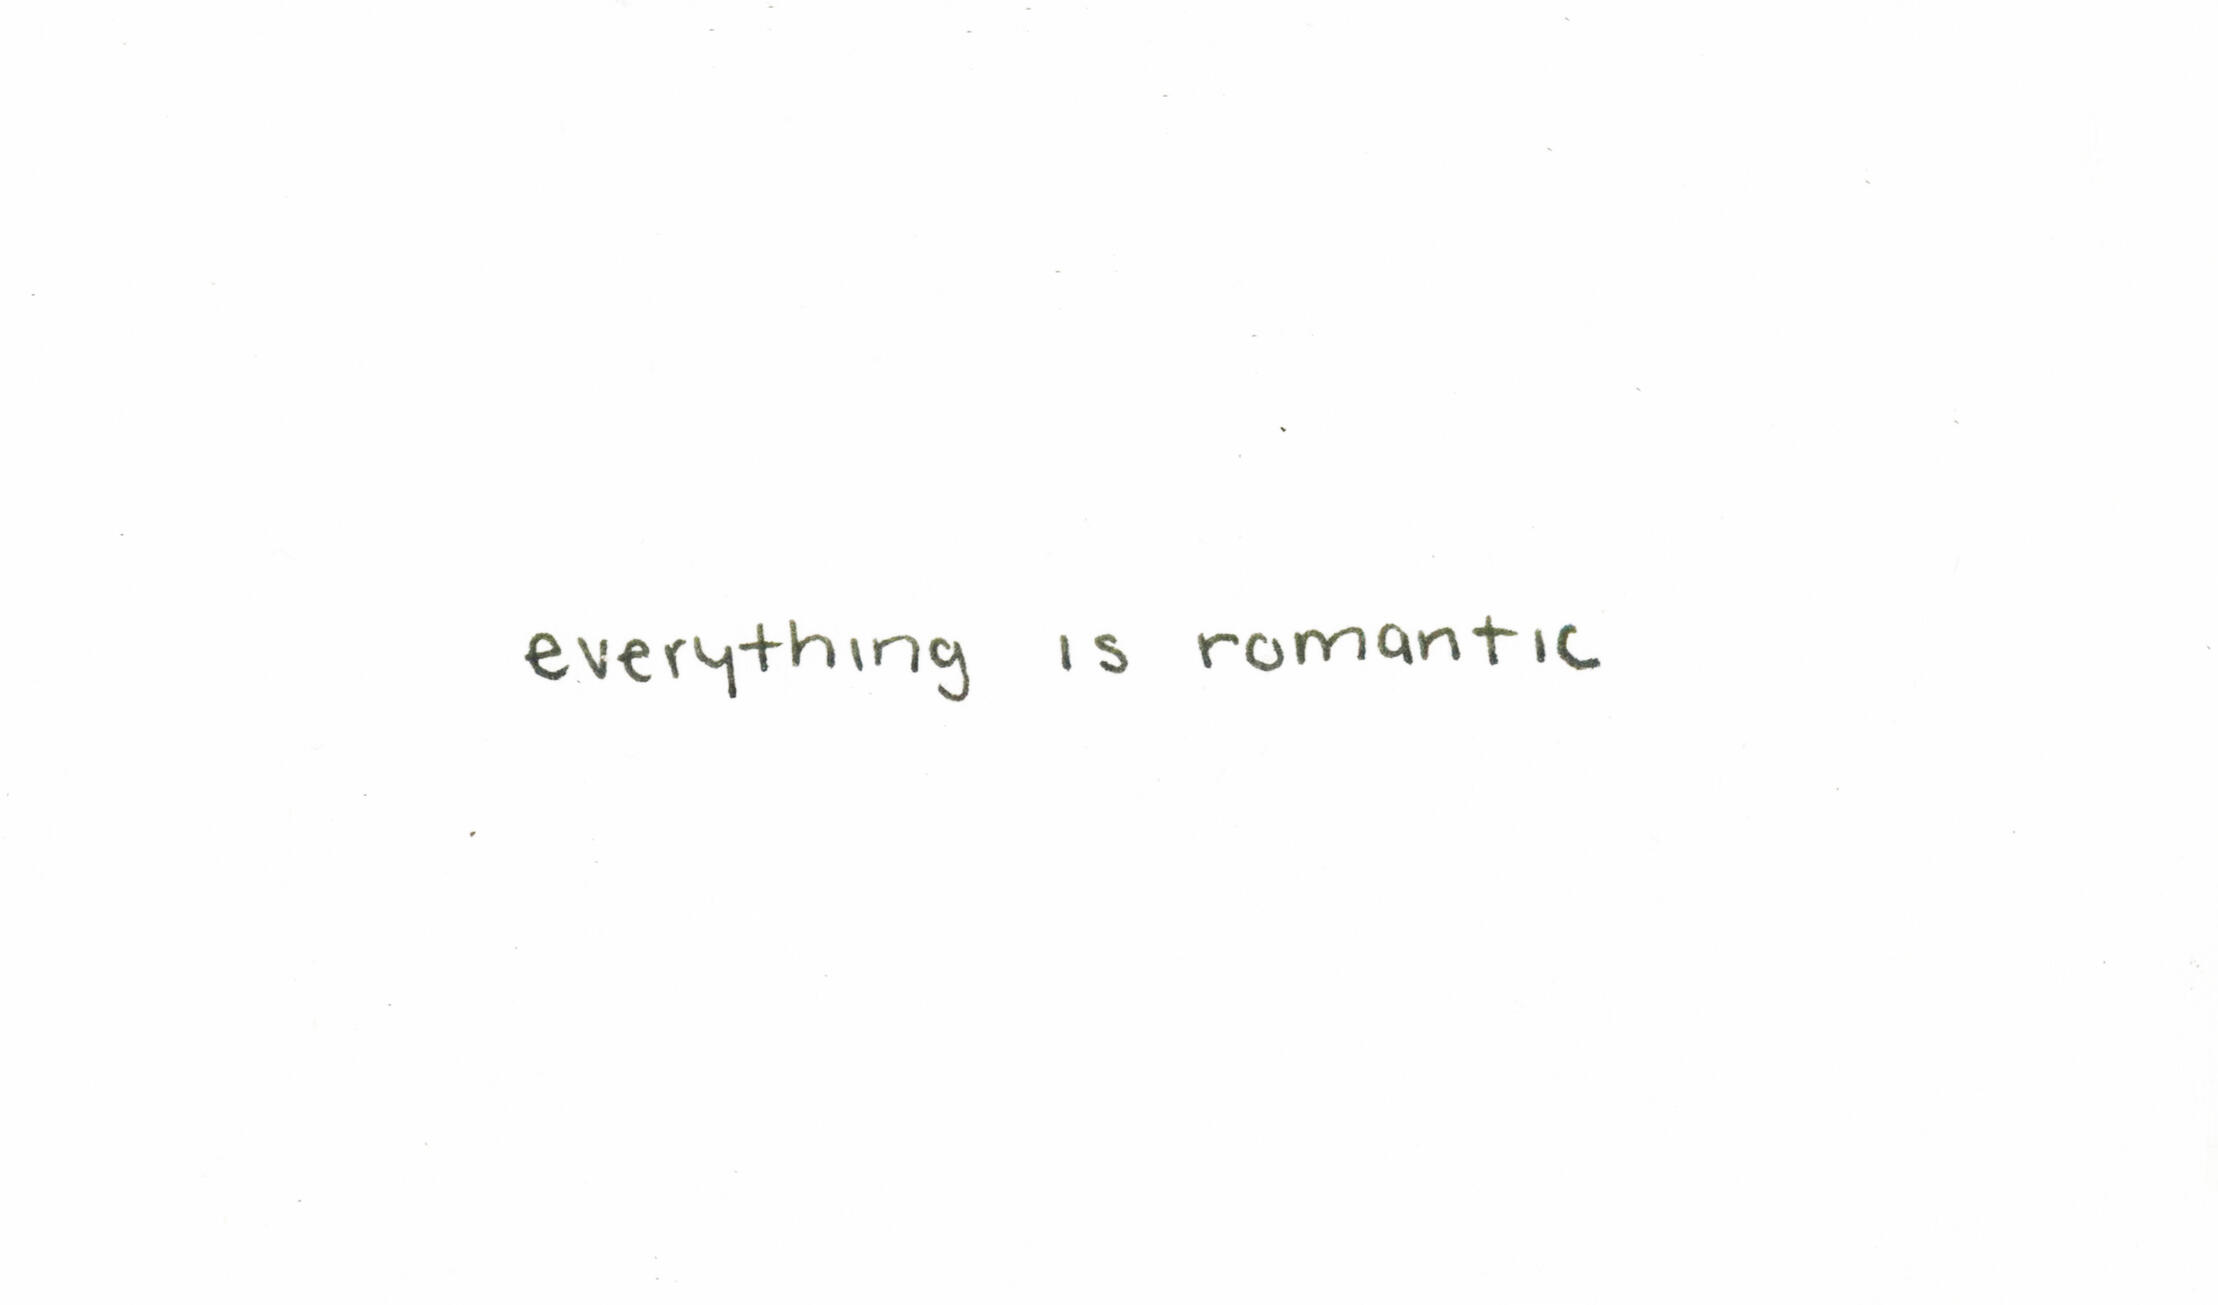 everything is romantic